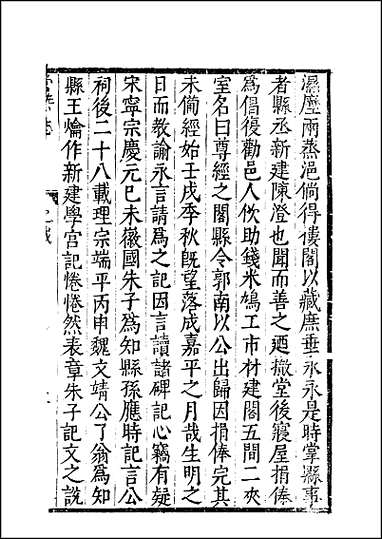 濕壓兩蒸浥倘得僂閣以藏庶垂永永是時掌縣事
者縣丞新建陳澄也聞而善之廼撤堂後寢屋捐俸
為倡復勸邑人佽助錢米鳩工市材建閣五間二夾
室名曰尊經之閣縣令郭南以公出歸因捐俸完其
未備經始壬戌季秋既望落成嘉平之月哉生明之
日而教諭永言請為之記因言讀諸碑記心竊有疑
宋寧宗慶元巳未徽國朱子為知縣孫應時記言公
祠後二十八載理宗端平丙申魏文靖公了翁為知
縣王爚作新建學宮記惓惓然表章朱子記文之說